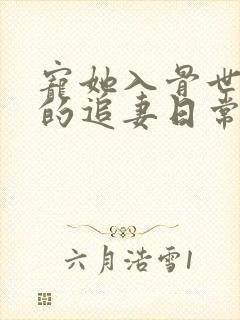 寵她入骨世
的追妻日常
六月浩雪1